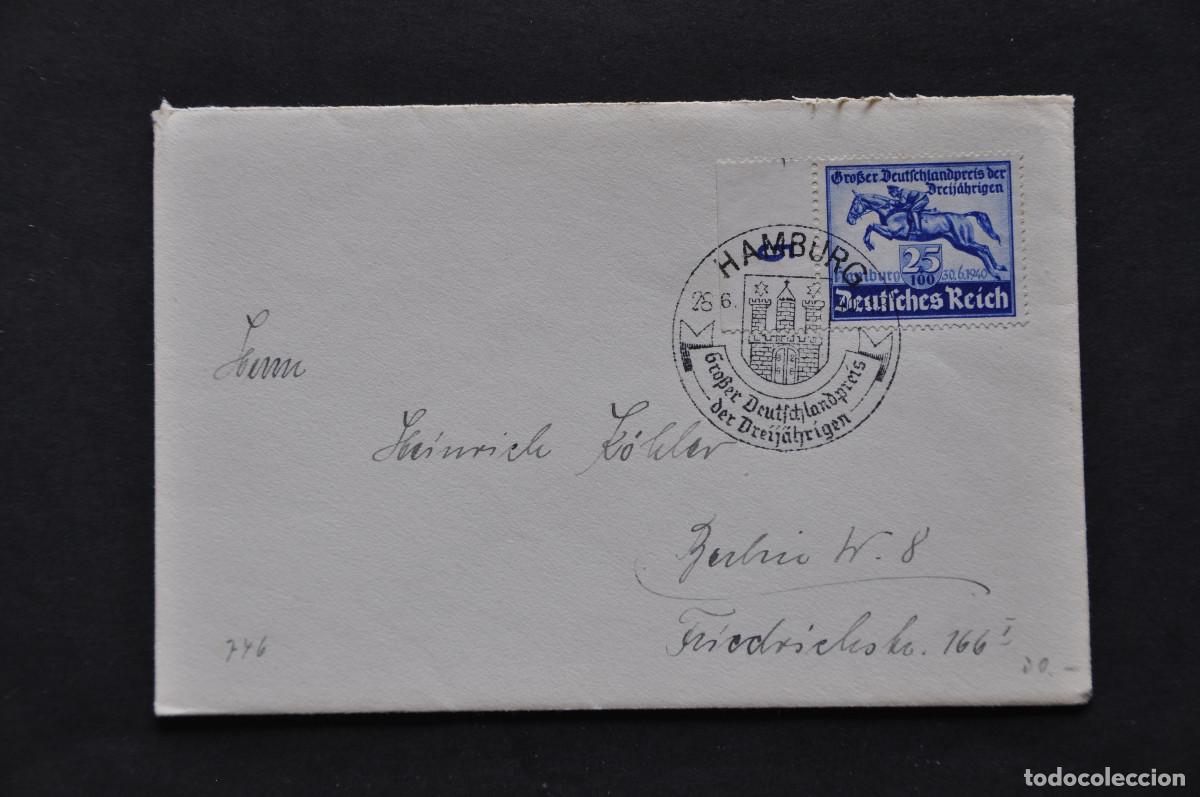 Großer Deutschlandpreis der
Dreijährigen
25
100
Hamburg 30.6.1940
Deutsches Reich
HAMBURG
25 6.
Großer Deutschlandpreis
der Dreijährigen
Herrn
Heinrich Köhler
Berlin W. 8
Friedrichstr. 166 I
746
todocoleccion